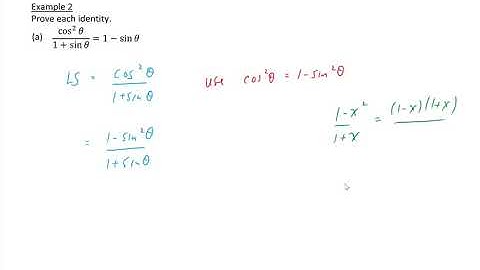 Example 2
Prove each identity.
(a) cos² θ / 1 + sin θ = 1 − sin θ
LS = cos²θ / 1+sinθ
use cos²θ = 1−sin²θ
1−x² / 1+x = (1−x)(1+x) /
= 1−sin²θ / 1+sinθ